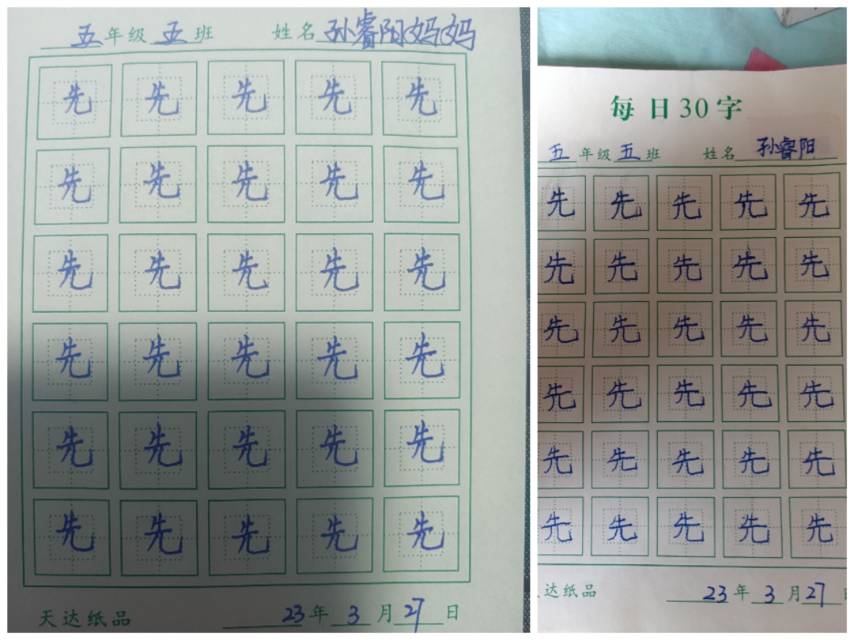 五年级 五班 姓名 孙睿阳妈妈
先 先 先 先 先
先 先 先 先 先
先 先 先 先 先
先 先 先 先 先
先 先 先 先 先
先 先 先 先 先
天达纸品 23年3月27日
每日30字
五年级五班 姓名 孙睿阳
先 先 先 先 先
先 先 先 先 先
先 先 先 先 先
先 先 先 先 先
先 先 先 先 先
先 先 先 先 先
达纸品 23年3月27日